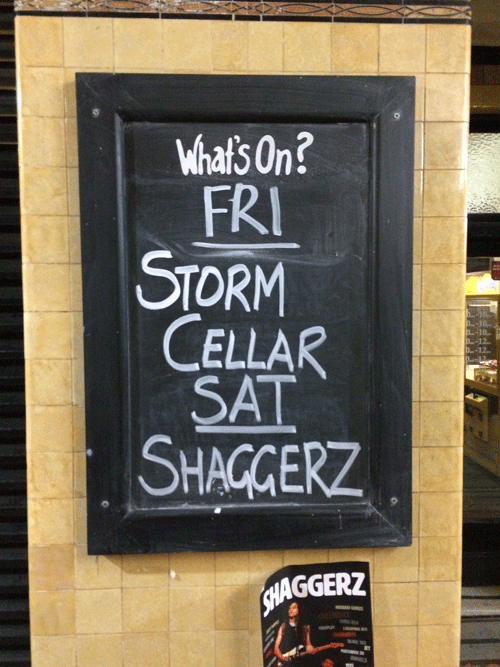 What's On?
FRI
STORM
CELLAR
SAT
SHAGGERZ
SHAGGERZ